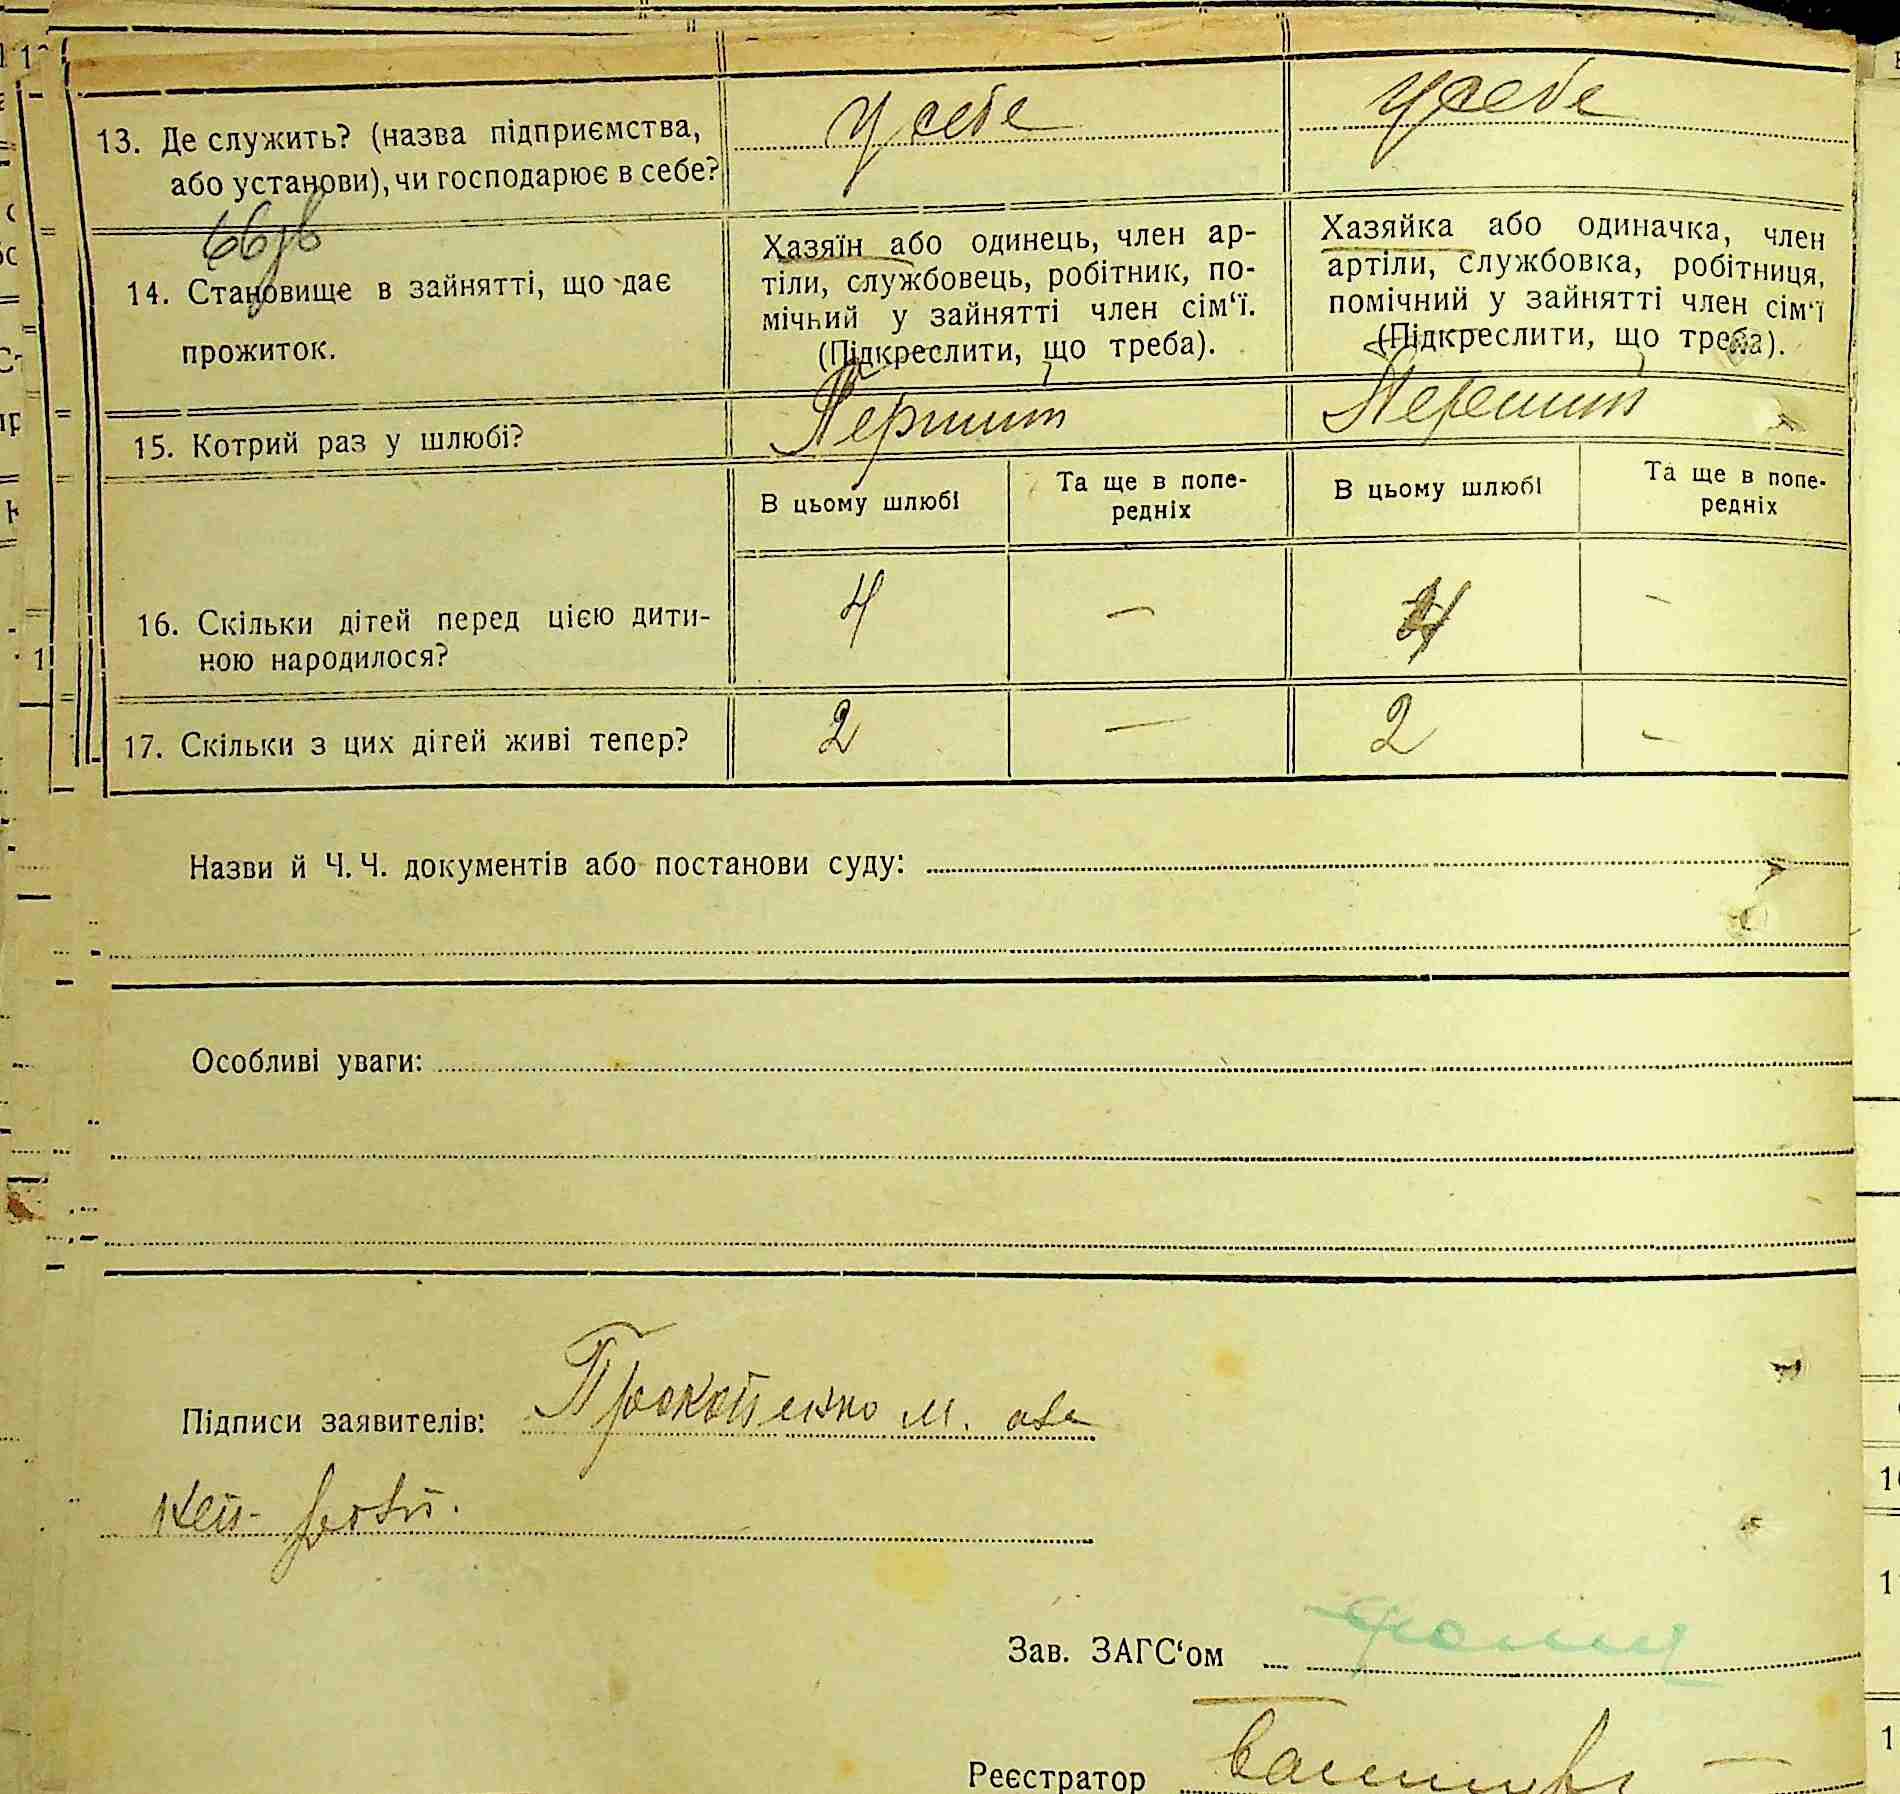 13. Де служить? (назва підприємства, або установи), чи господарює в себе?
У себе
У себе
14. Становище в зайнятті, що дає прожиток.
Хазяїн або одинець, член ар-
тіли, службовець, робітник, по-
мічний у зайнятті член сім‘ї.
(Підкреслити, що треба).
Хазяйка або одиначка, член
артіли, службовка, робітниця,
помічний у зайнятті член сім‘ї
(Підкреслити, що треба).
15. Котрий раз у шлюбі?
Перший
Перший
В цьому шлюбі
Та ще в попе-
редніх
В цьому шлюбі
Та ще в попе-
редніх
16. Скільки дітей перед цією дити-
ною народилося?
4 — 4 -
17. Скільки з цих дітей живі тепер?
2 — 2 -
Назви й Ч. Ч. документів або постанови суду:
Особливі уваги:
Підписи заявителів: Прокопенко м.
Зав. ЗАГС‘ом
Реєстратор